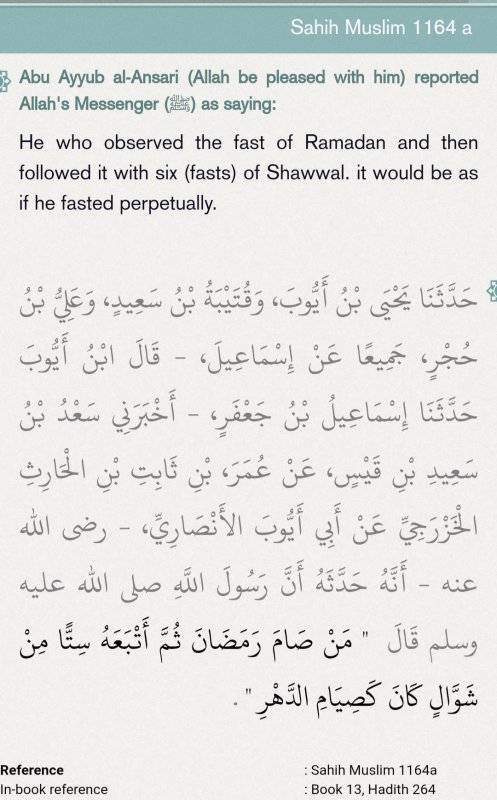 Sahih Muslim 1164 a
Abu Ayyub al-Ansari (Allah be pleased with him) reported
Allah's Messenger (ﷺ) as saying:
He who observed the fast of Ramadan and then
followed it with six (fasts) of Shawwal. it would be as
if he fasted perpetually.
حَدَّثَنَا يَحْيَى بْنُ أَيُّوبَ، وَقُتَيْبَةُ بْنُ سَعِيدٍ، وَعَلِيُّ بْنُ
حُجْرٍ، جَمِيعًا عَنْ إِسْمَاعِيلَ، - قَالَ ابْنُ أَيُّوبَ
حَدَّثَنَا إِسْمَاعِيلُ بْنُ جَعْفَرٍ، - أَخْبَرَنِي سَعْدُ بْنُ
سَعِيدِ بْنِ قَيْسٍ، عَنْ عُمَرَ، بْنِ ثَابِتِ بْنِ الْحَارِثِ
الْخَزْرَجِيِّ عَنْ أَبِي أَيُّوبَ الأَنْصَارِيِّ، - رضى الله
عنه - أَنَّهُ حَدَّثَهُ أَنَّ رَسُولَ اللَّهِ صلى الله عليه
وسلم قَالَ " مَنْ صَامَ رَمَضَانَ ثُمَّ أَتْبَعَهُ سِتًّا مِنْ
شَوَّالٍ كَانَ كَصِيَامِ الدَّهْرِ " .
Reference : Sahih Muslim 1164a
In-book reference : Book 13, Hadith 264